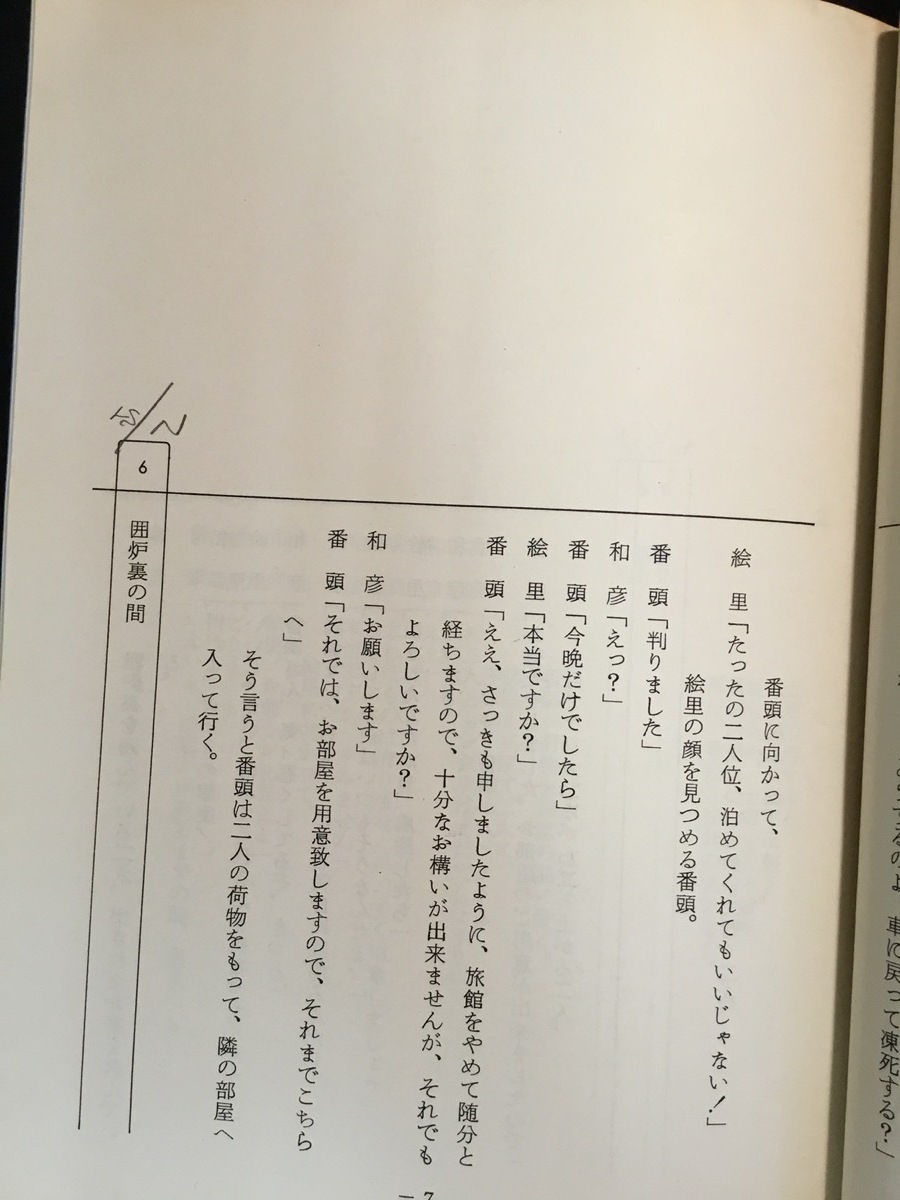 車に戻って凍死する？」
番頭に向かって、
絵　里「たったの二人位、泊めてくれてもいいじゃない！」
絵里の顔を見つめる番頭。
番　頭「判りました」
和　彦「えっ？」
番　頭「今晩だけでしたら」
絵　里「本当ですか？」
番　頭「ええ、さっきも申しましたように、旅館をやめて随分と
経ちますので、十分なお構いが出来ませんが、それでも
よろしいですか？」
和　彦「お願いします」
番　頭「それでは、お部屋を用意致しますので、それまでこちら
へ」
そう言うと番頭は二人の荷物をもって、隣の部屋へ
入って行く。
6
囲炉裏の間
7